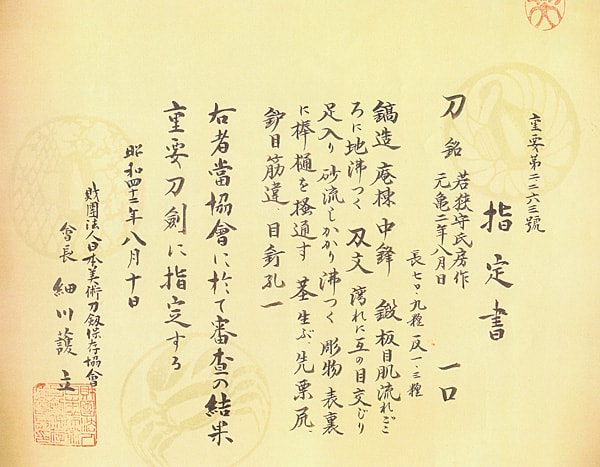 重要第二二六三號
指定書
刀 銘 若狭守氏房作 一口
元亀二年八月日
長七〇・九糎 反一・三糎
鎬造 庵棟 中鋒 鍛 板目肌流れごこ
ろに地沸つく 刃文 湾れに互の目交じり
足入り 砂流しかかり 沸つく 彫物 表裏
に棒樋を掻通す 茎 生ぶ 先栗尻、
鈩目筋違、目釘孔一
右者當協會に於て審査の結果
重要刀劍に指定する
昭和四十二年八月十日
財團法人日本美術刀劔保存協會
會長 細川護立